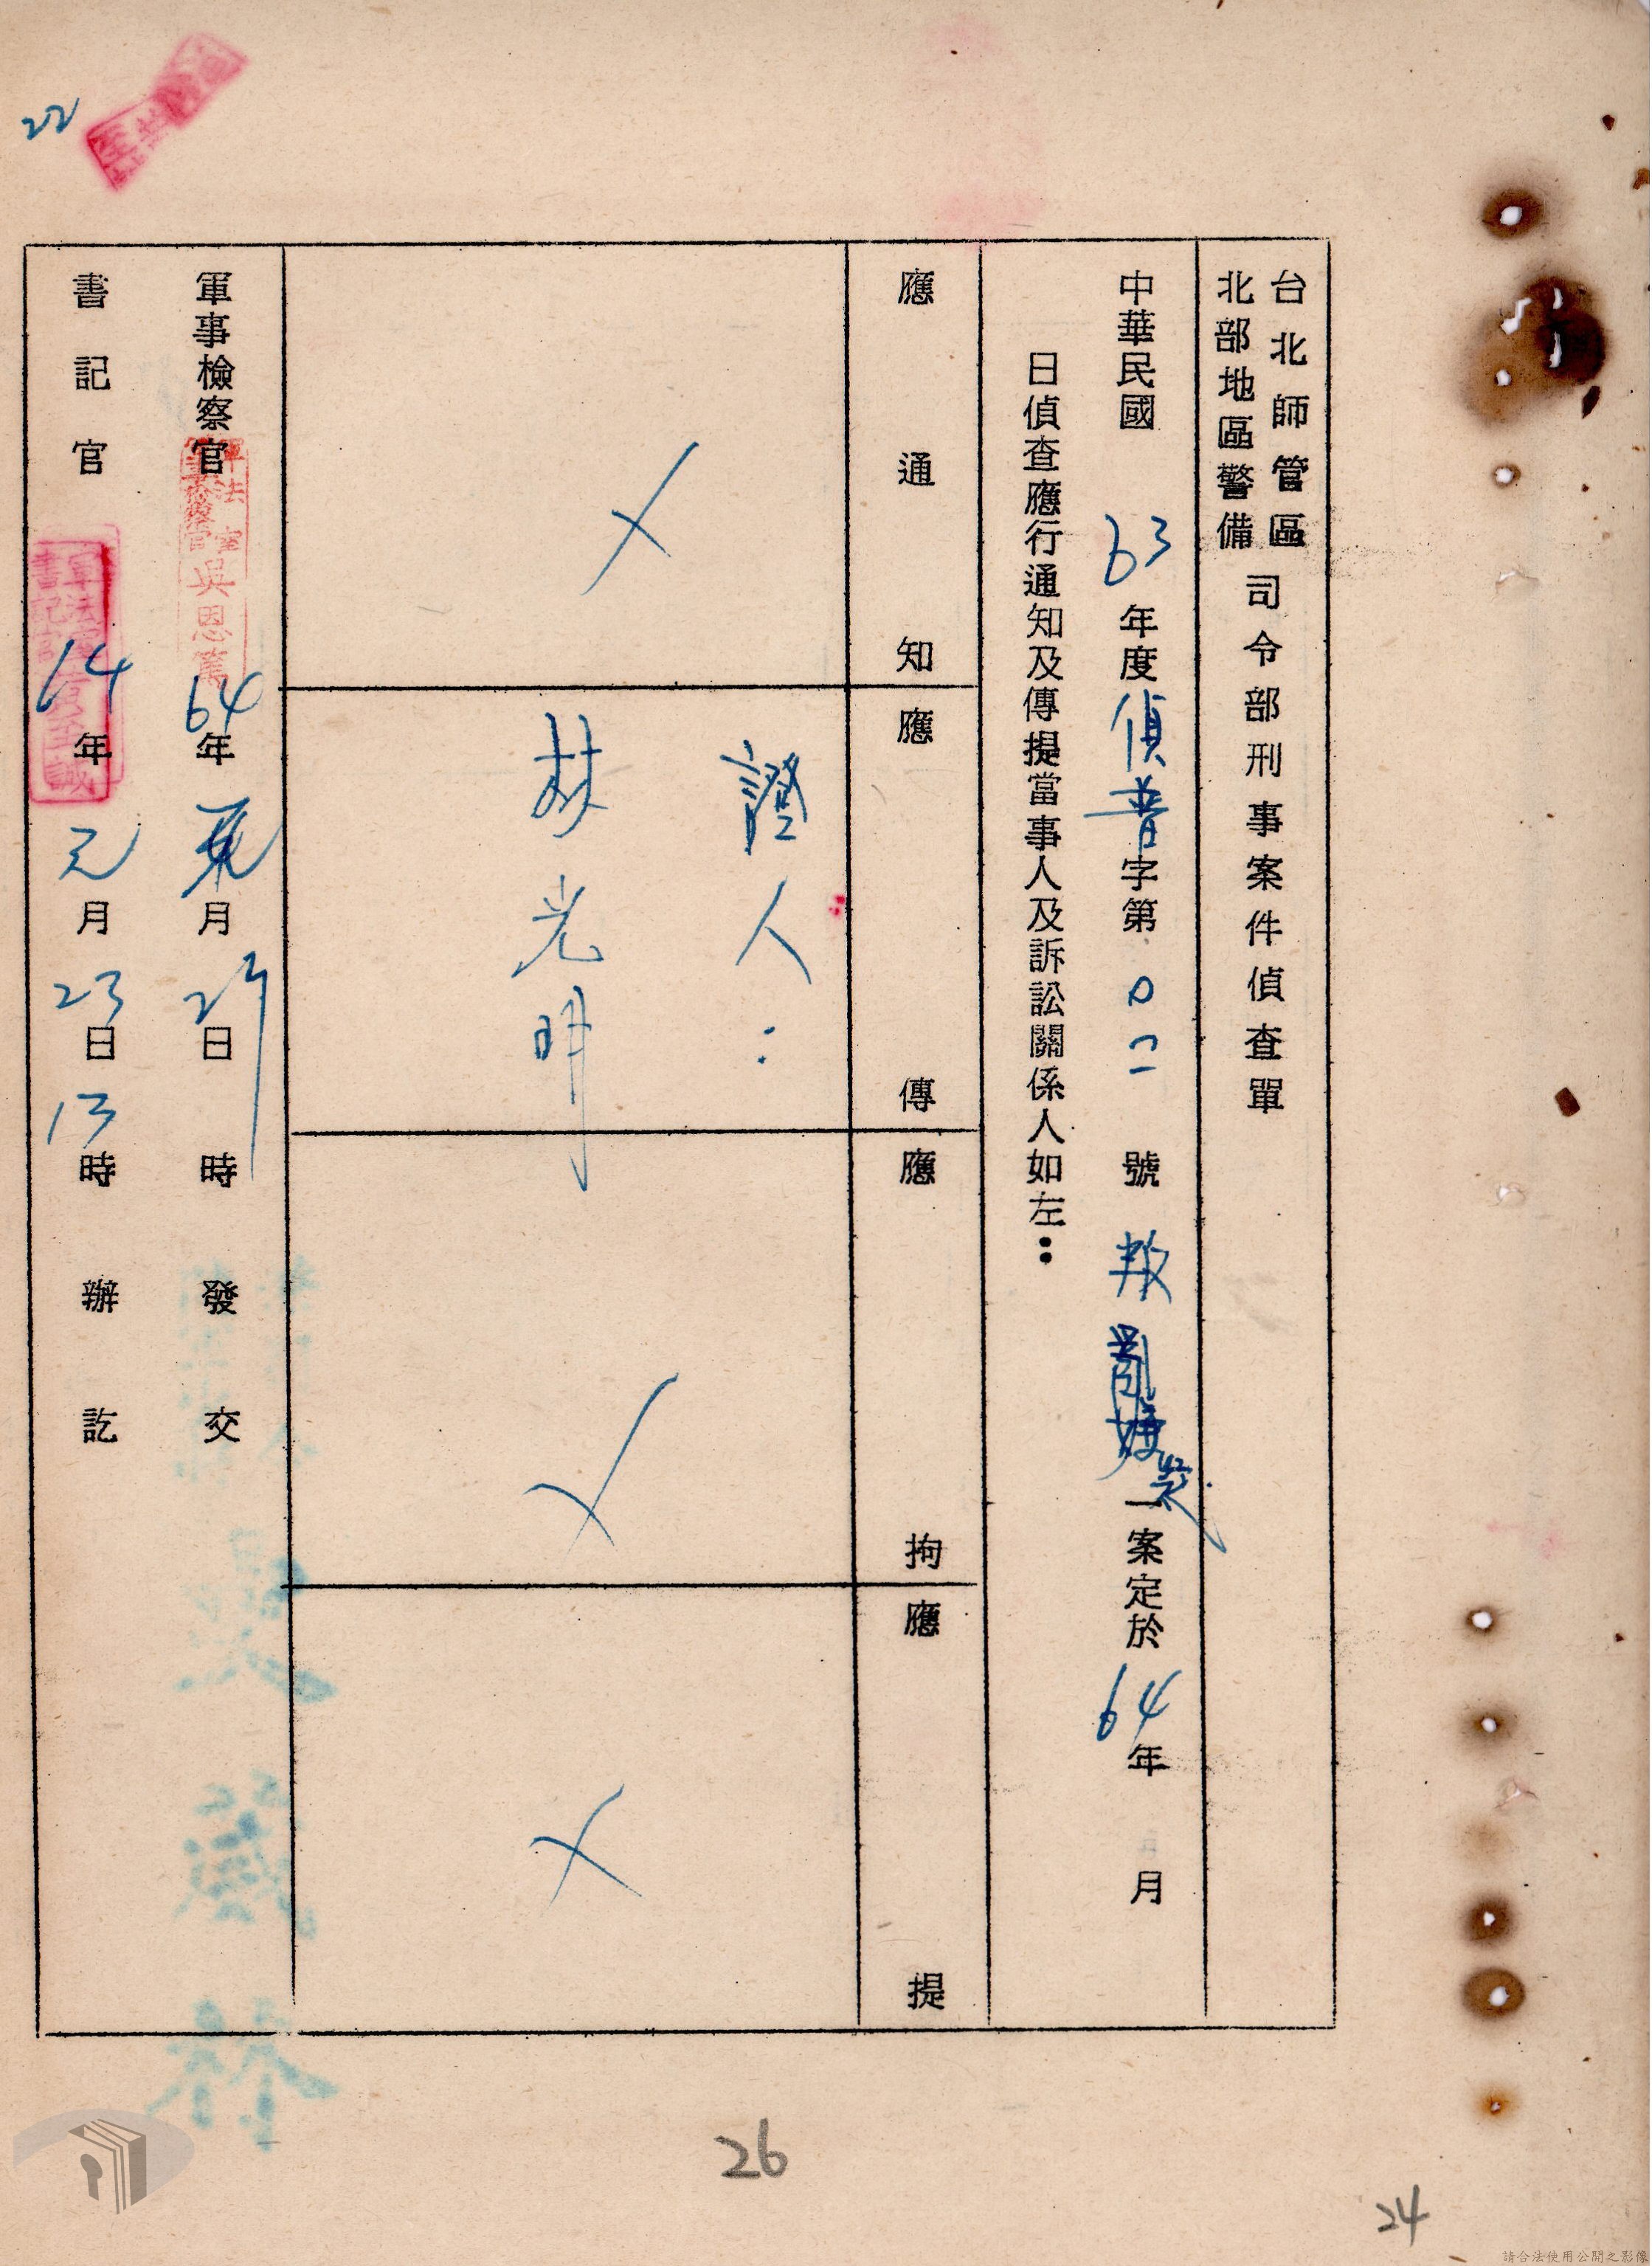 台北師管區
北部地區警備
司令部刑事案件偵查單
中華民國63年度偵普字第0二號叛亂嫌疑一案定於64年 月
日偵查應行通知及傳提當事人及訴訟關係人如左：
應通知
應傳
應拘
應提
證人：
林光明
軍事檢察官 64年元月23日 時發交
軍法室
軍事檢察官
吳恩篤
書記官 64年元月23日13時辦訖
軍法室
書記官
22
26
24
請合法使用公開之影像